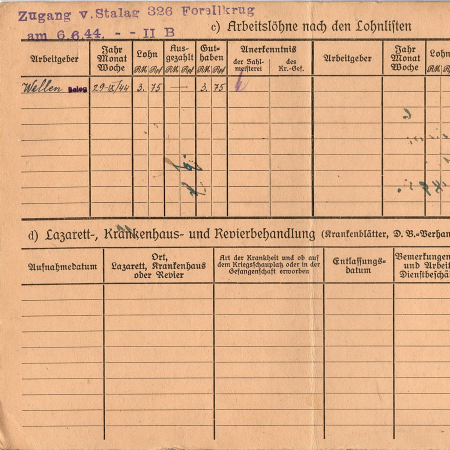 Zugang v. Stalag 326 Forellkrug
am 6.6.44. - - II B
c) Arbeitslöhne nach den Lohnlisten
Arbeitgeber
Jahr Monat Woche
Lohn
RM Rpf
Ausgezahlt
RM Rpf
Guthaben
RM Rpf
Anerkenntnis
der Zahlmeisterei
des Kr.-Gef.
Arbeitgeber
Jahr Monat Woche
Lohn
RM Rpf
Wellen 3. 75 — 3. 75
d) Lazarett-, Krankenhaus- und Revierbehandlung (Krankenblätter, D. B.-Verhan
Aufnahmedatum
Ort,
Lazarett, Krankenhaus
oder Revier
Art der Krankheit und ob auf
dem Kriegsschauplatz oder in der
Gefangenschaft erworben
Entlassungs-
datum
Bemerkungen
und Arbeit
Dienstbeschä